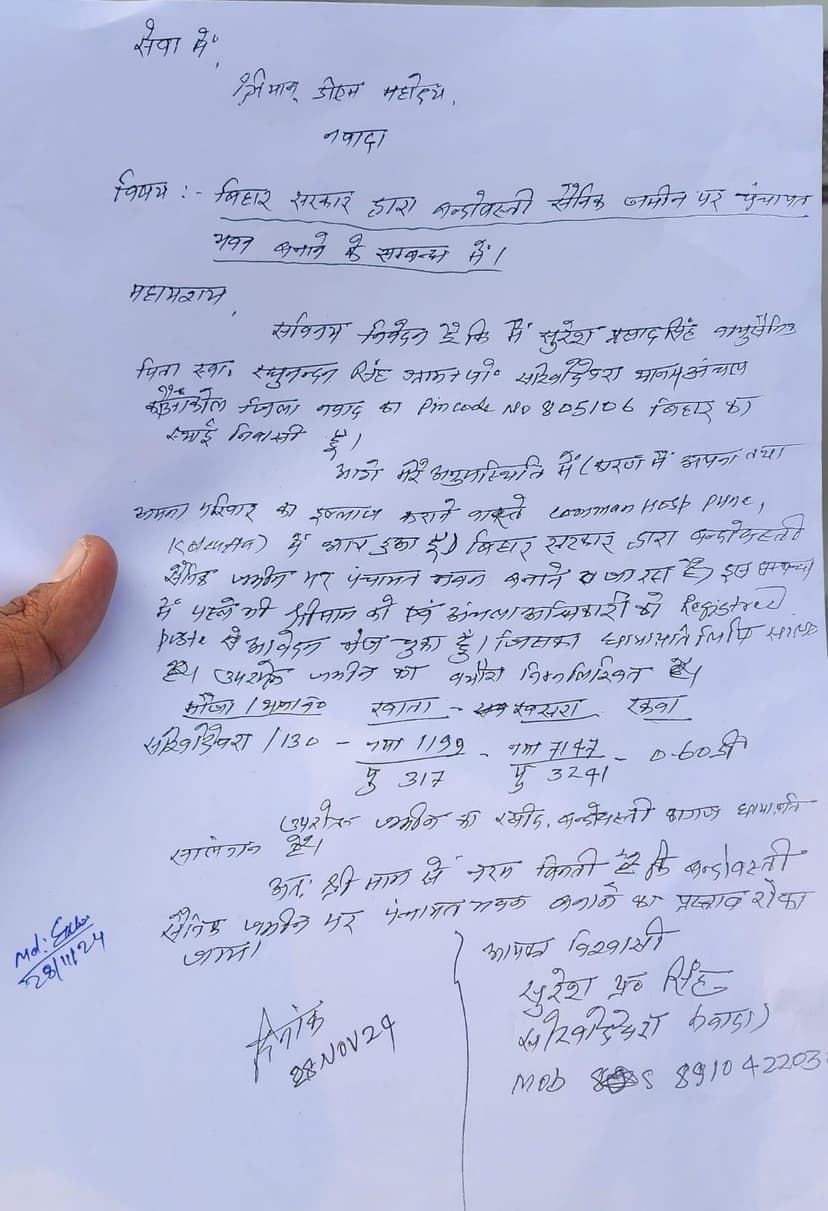 सेवा में,
श्रीमान् डीएम महोदय,
नवादा
विषय :- बिहार सरकार द्वारा बन्दोवस्ती सैनिक जमीन पर पंचायत
भवन बनाने के सम्बन्ध में।
महाशय,
सविनय निवेदन है कि मैं सुरेश प्रसाद सिंह
पिता स्व. रघुनन्दन सिंह ग्राम+पो०
कौआकोल जिला नवादा का Pin code No 805106 बिहार का
स्थाई निवासी हूँ।
आगे मेरे अनुपस्थिति में (कारण मैं अपना तथा
अपना परिवार का इलाज कराने वास्ते Comman Hosp Pune,
Kolcutta) में आय हुआ हूँ) बिहार सरकार द्वारा बन्दोवस्ती
सैनिक जमीन पर पंचायत भवन बनाने जा रहा है) इस सम्बन्ध
में पहले भी श्रीमान को एवं अंचलाअधिकारी को Registred
से आवेदन भेज चुका हूँ। जिसका छायाप्रति लिपि
है। उपरोक्त जमीन का ब्यौरा निम्नलिखित है।
मौजा / थाना नं० खाता - खसरा रकवा
/130 - नया 1199 - नया 7147 - 0-60 डी
पु 317 पु 3241
उपरोक्त जमीन का रसीद, बन्दोवस्ती कागज छायाप्रति
है।
अतः श्री मान से नरम विनती है कि बन्दोवस्ती
सैनिक जमीन पर पंचायत भवन बनाने का प्रस्ताव रोका
जाय।
आपका विश्वासी
सुरेश प्र० सिंह
(नवादा)
Mob 891042203
दिनांक
28 NOV 24
Md.
28/11/24